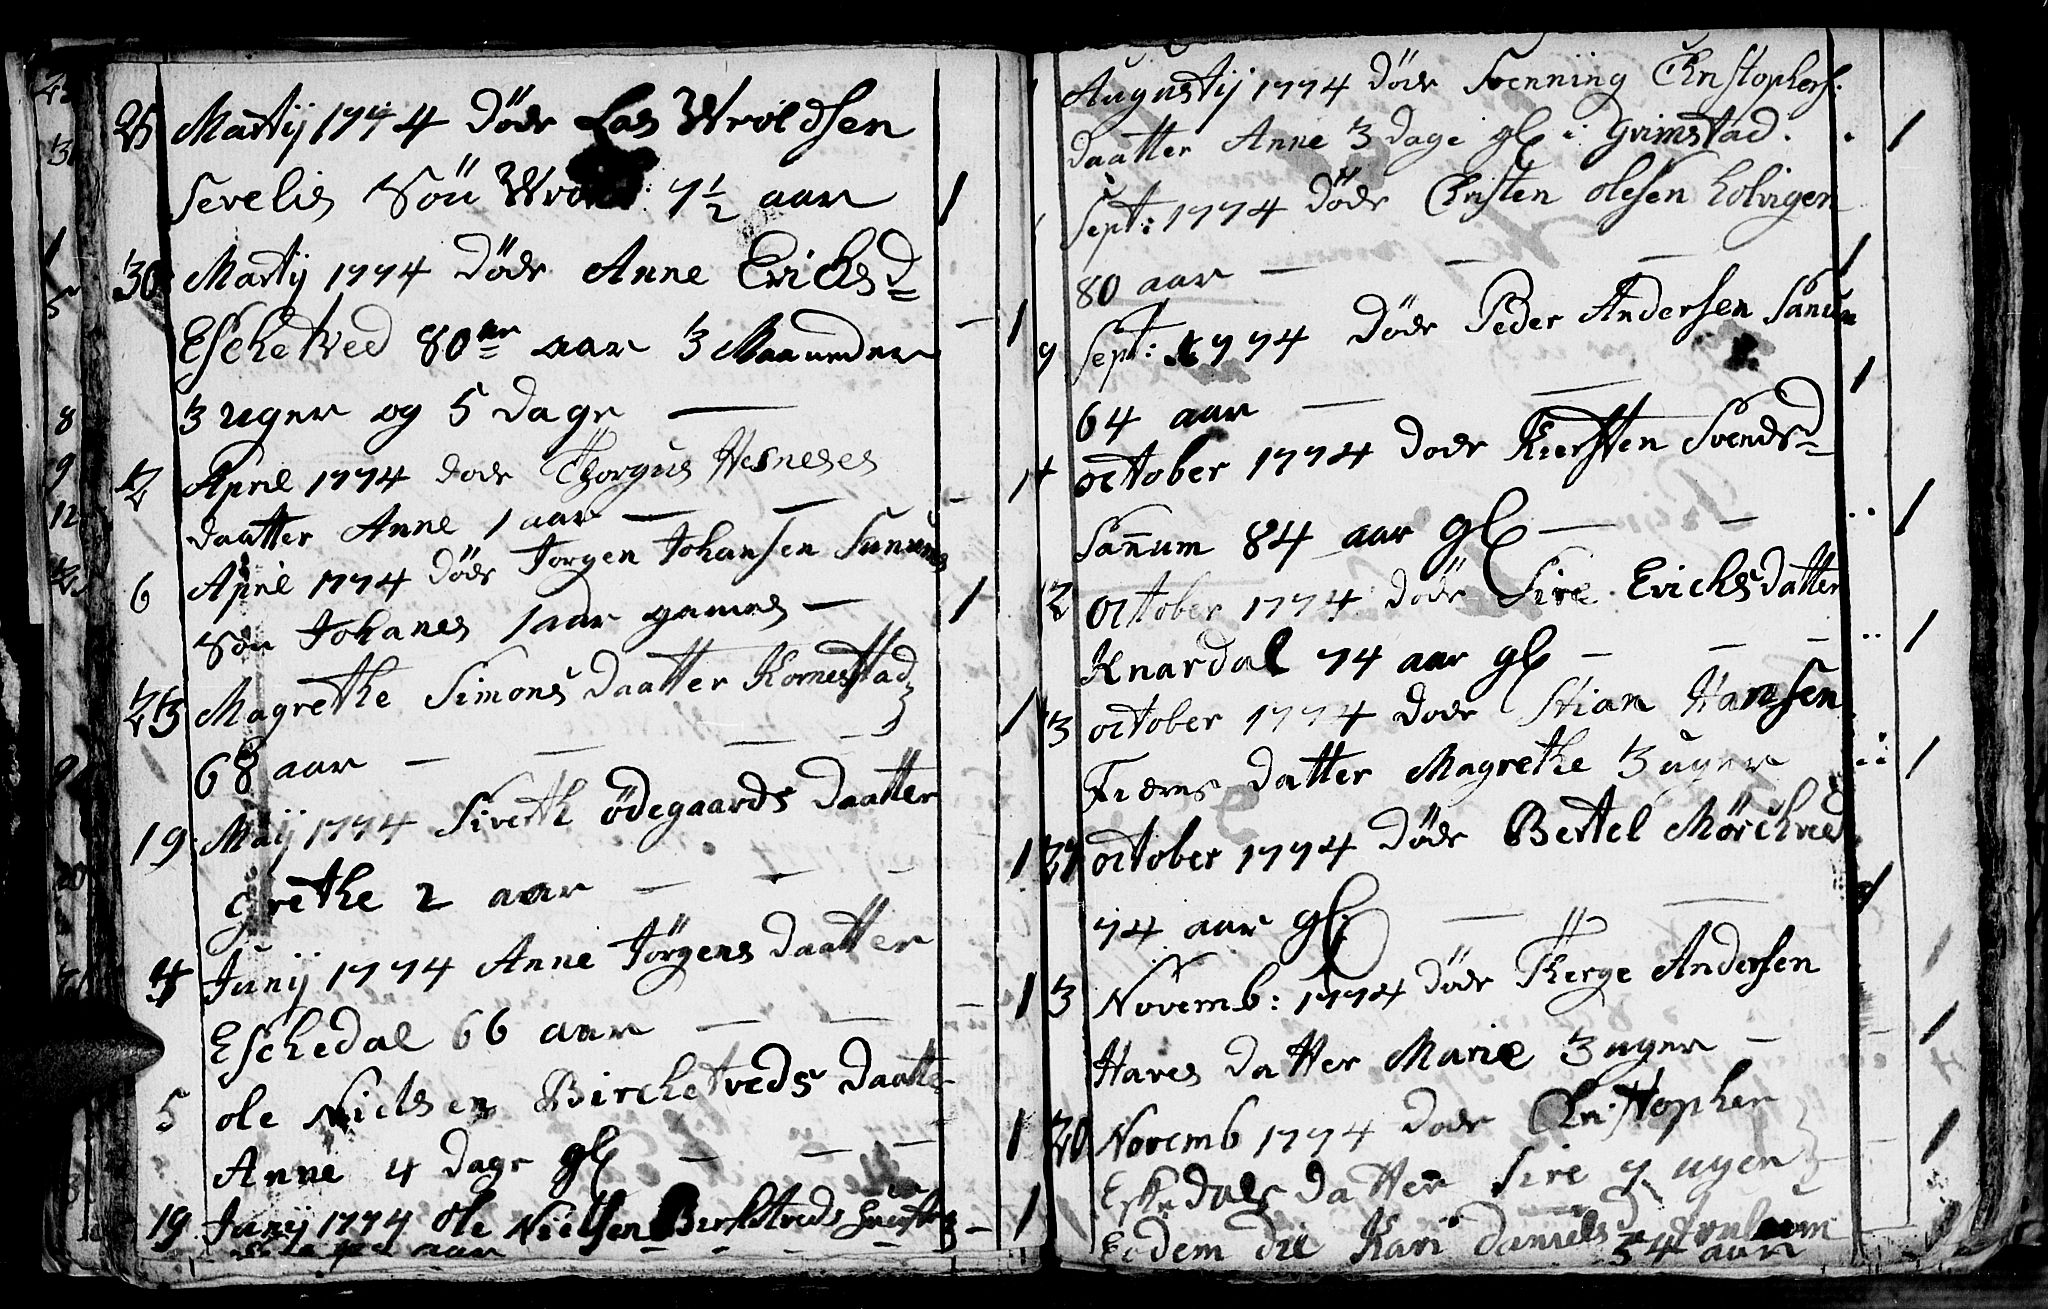 25 Martij 1774 döde Las Wroldsen
Sevelis Sön 7 1/2 aar 1
30 Martij 1774 döde Anne Erichsd=
Eschetved 80 aar 3 Maaneder 1
3 uger og 5 dage —
2 April 1774 dode Thorgus Hesneses
daatter Anne 1 aar — —
6 April 1774 döde Jorgen Johansen
Sön Johanes 1 aar gamel — 1
23 Magrethe Simons daatter
68 aar — — — — 1
19 Maij 1774 Siverth ödegaards daatter
grethe 2 aar — — — 1
4 Junij 1774 Anne Jörgens daatter
Eschedal 66 aar — — — 1
5 ole Nielsen Birchetveds daatter
Anne 4 dage gl — — — 1
19 Junij 1774 ole Nielsen — 1
Augustij 1774 döde Svenning Christophers:
daatter Anne 3 dage gl i Grimstad. 1
Sept: 1774 döde Christen olesen holvigen
80 aar — — — 1
9 Sept: 1774 döde Peder Andersen
64 aar — — 1
14 october 1774 dode Kiersten Svends d=
Sannum 84 aar gl — — 1
12 october 1774 döde Sire Erichsdatter
Knardal 74 aar gl — — — 1
13 october 1774 dode Stian Hansen
datter Magrethe 3 uger 1
october 1774 döde Bertel
74 aar gl — — 1
13 Novemb: 1774 döde Therge Andersen 1
Hares datter Marie 3 uger — 1
20 Novemb 1774 dode Christopher
Eskedals datter Sire 7 uger — 1
Eodem die Kari daniels d
54 aar